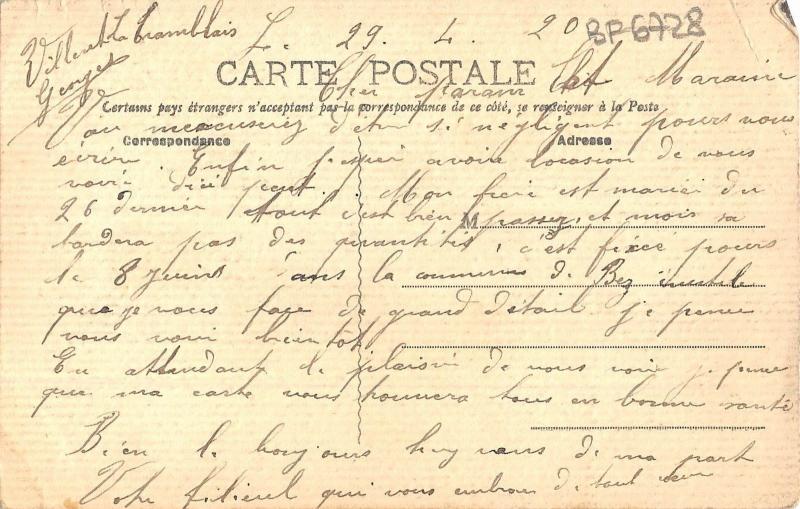 Villeret La Tramblais
Georges
L. 29. 4. 20
BP 6728
CARTE POSTALE
Cher Param et Maraine
Certains pays étrangers n'acceptant pas la correspondance de ce côté, se renseigner à la Poste
mexcuserez d'etre si négligent pours vous
Correspondance
Adresse
écrire. Enfin j'esper avoire locasion de vous
voire dici peut. Mon frere est mariéi du
26 dernier tout c'est bien passez, et mois sa
M
tardera pas des quantités, c'est fixcé pours
le 8 juins dans la commune de Bez inutile
que je vous face de grand détail je pense
vous voir bientot
En attendant le plaisir de vous voir je pense
que ma carte vous trouvera tous en bonne santé
Bien le bonjours chez vous de ma part
Votre filieul qui vous embrasse de tout cœur